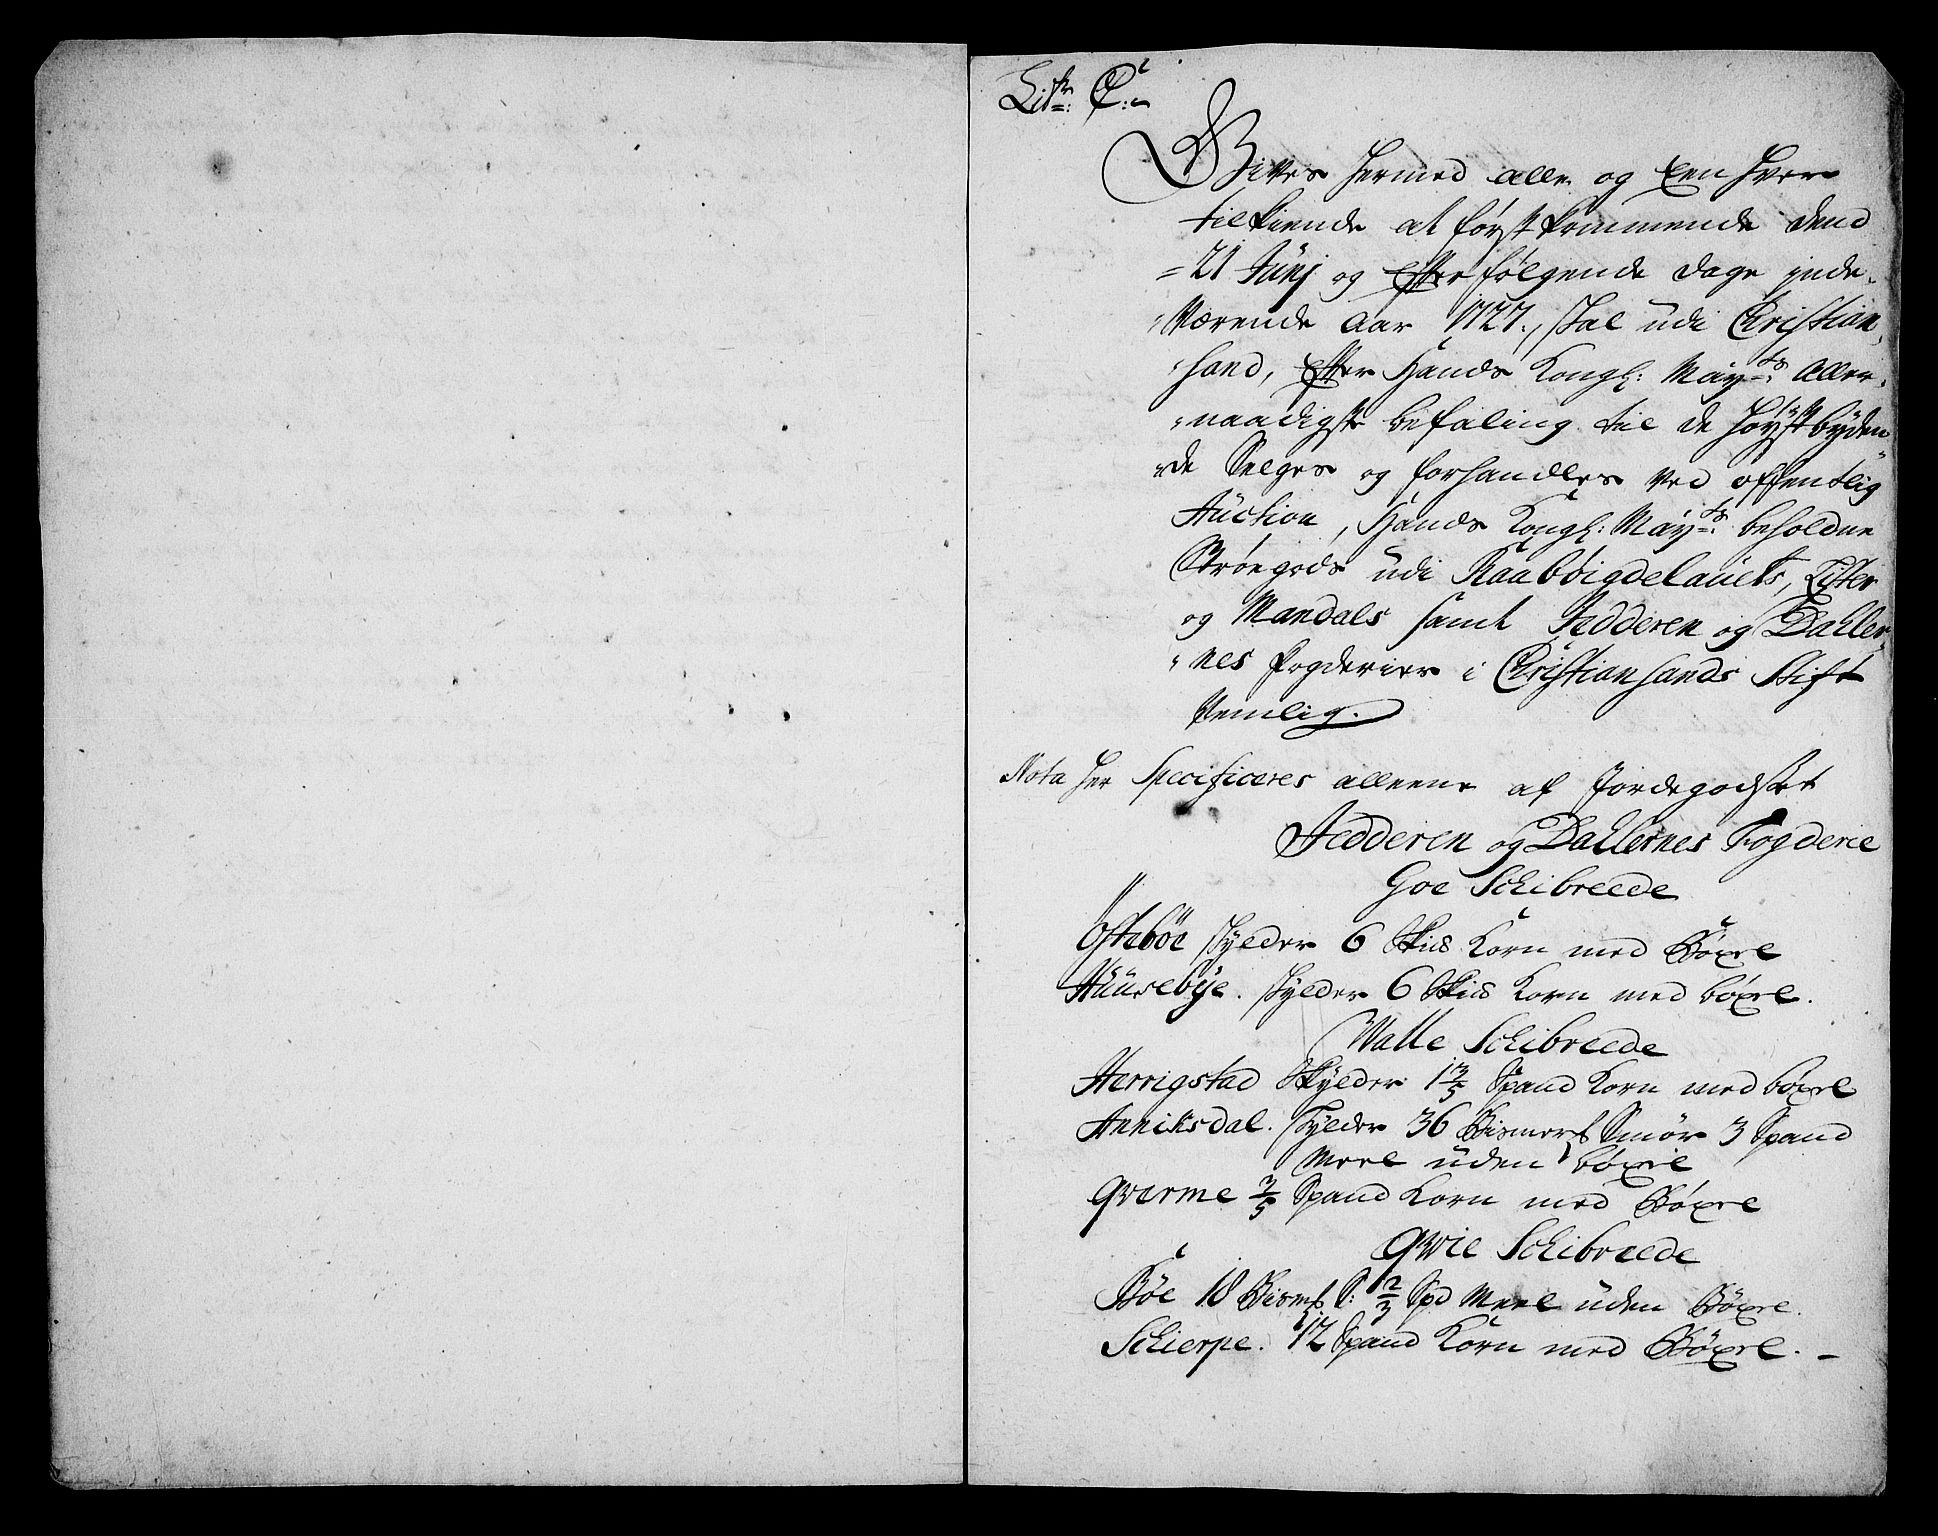 Litr: C:
Gives hermed alle og Een hver
tilkiende at først kommende dend
21 Junj og Efter følgende dage inde-
Værende Aar 1727., skal udi Christian
sand, Efter Hands Kongl: May:ts Aller
naadigste befaling til de høyst byden
de Selges og forhandles ved offentlig
Auction, Hands Kongl: May:ts beholdne
Strøegods udi Raabøigdelauets, Lister
og Mandals samt Jedderen og Dahler
nes fogderier i Christiansands Stift
Nemlig.
Nota her Specificeres alleene af Jordegodset
Jedderen og Dahlernes Fogderie
Goe Schibreede
Østebøe skylder 6 Skid Korn med Bøxel
Huusebye. skylder 6 Skid Korn med bøxel.
Walle Schibreede
Herrigstad Skylder 1 2/5 Spand Korn med bøxel
Anniksdal. skylder 36 Bismer℔ Smør 3 Spand
Meel uden bøxel
Qverme 2/5 Spand Korn med Bøxel
Qvie Schibreede
Bøe 18 Bism℔ S: 1 2/3 Spd Meel uden Bøxel.
Schierpe. 12 Spand Korn med Bøxel. -